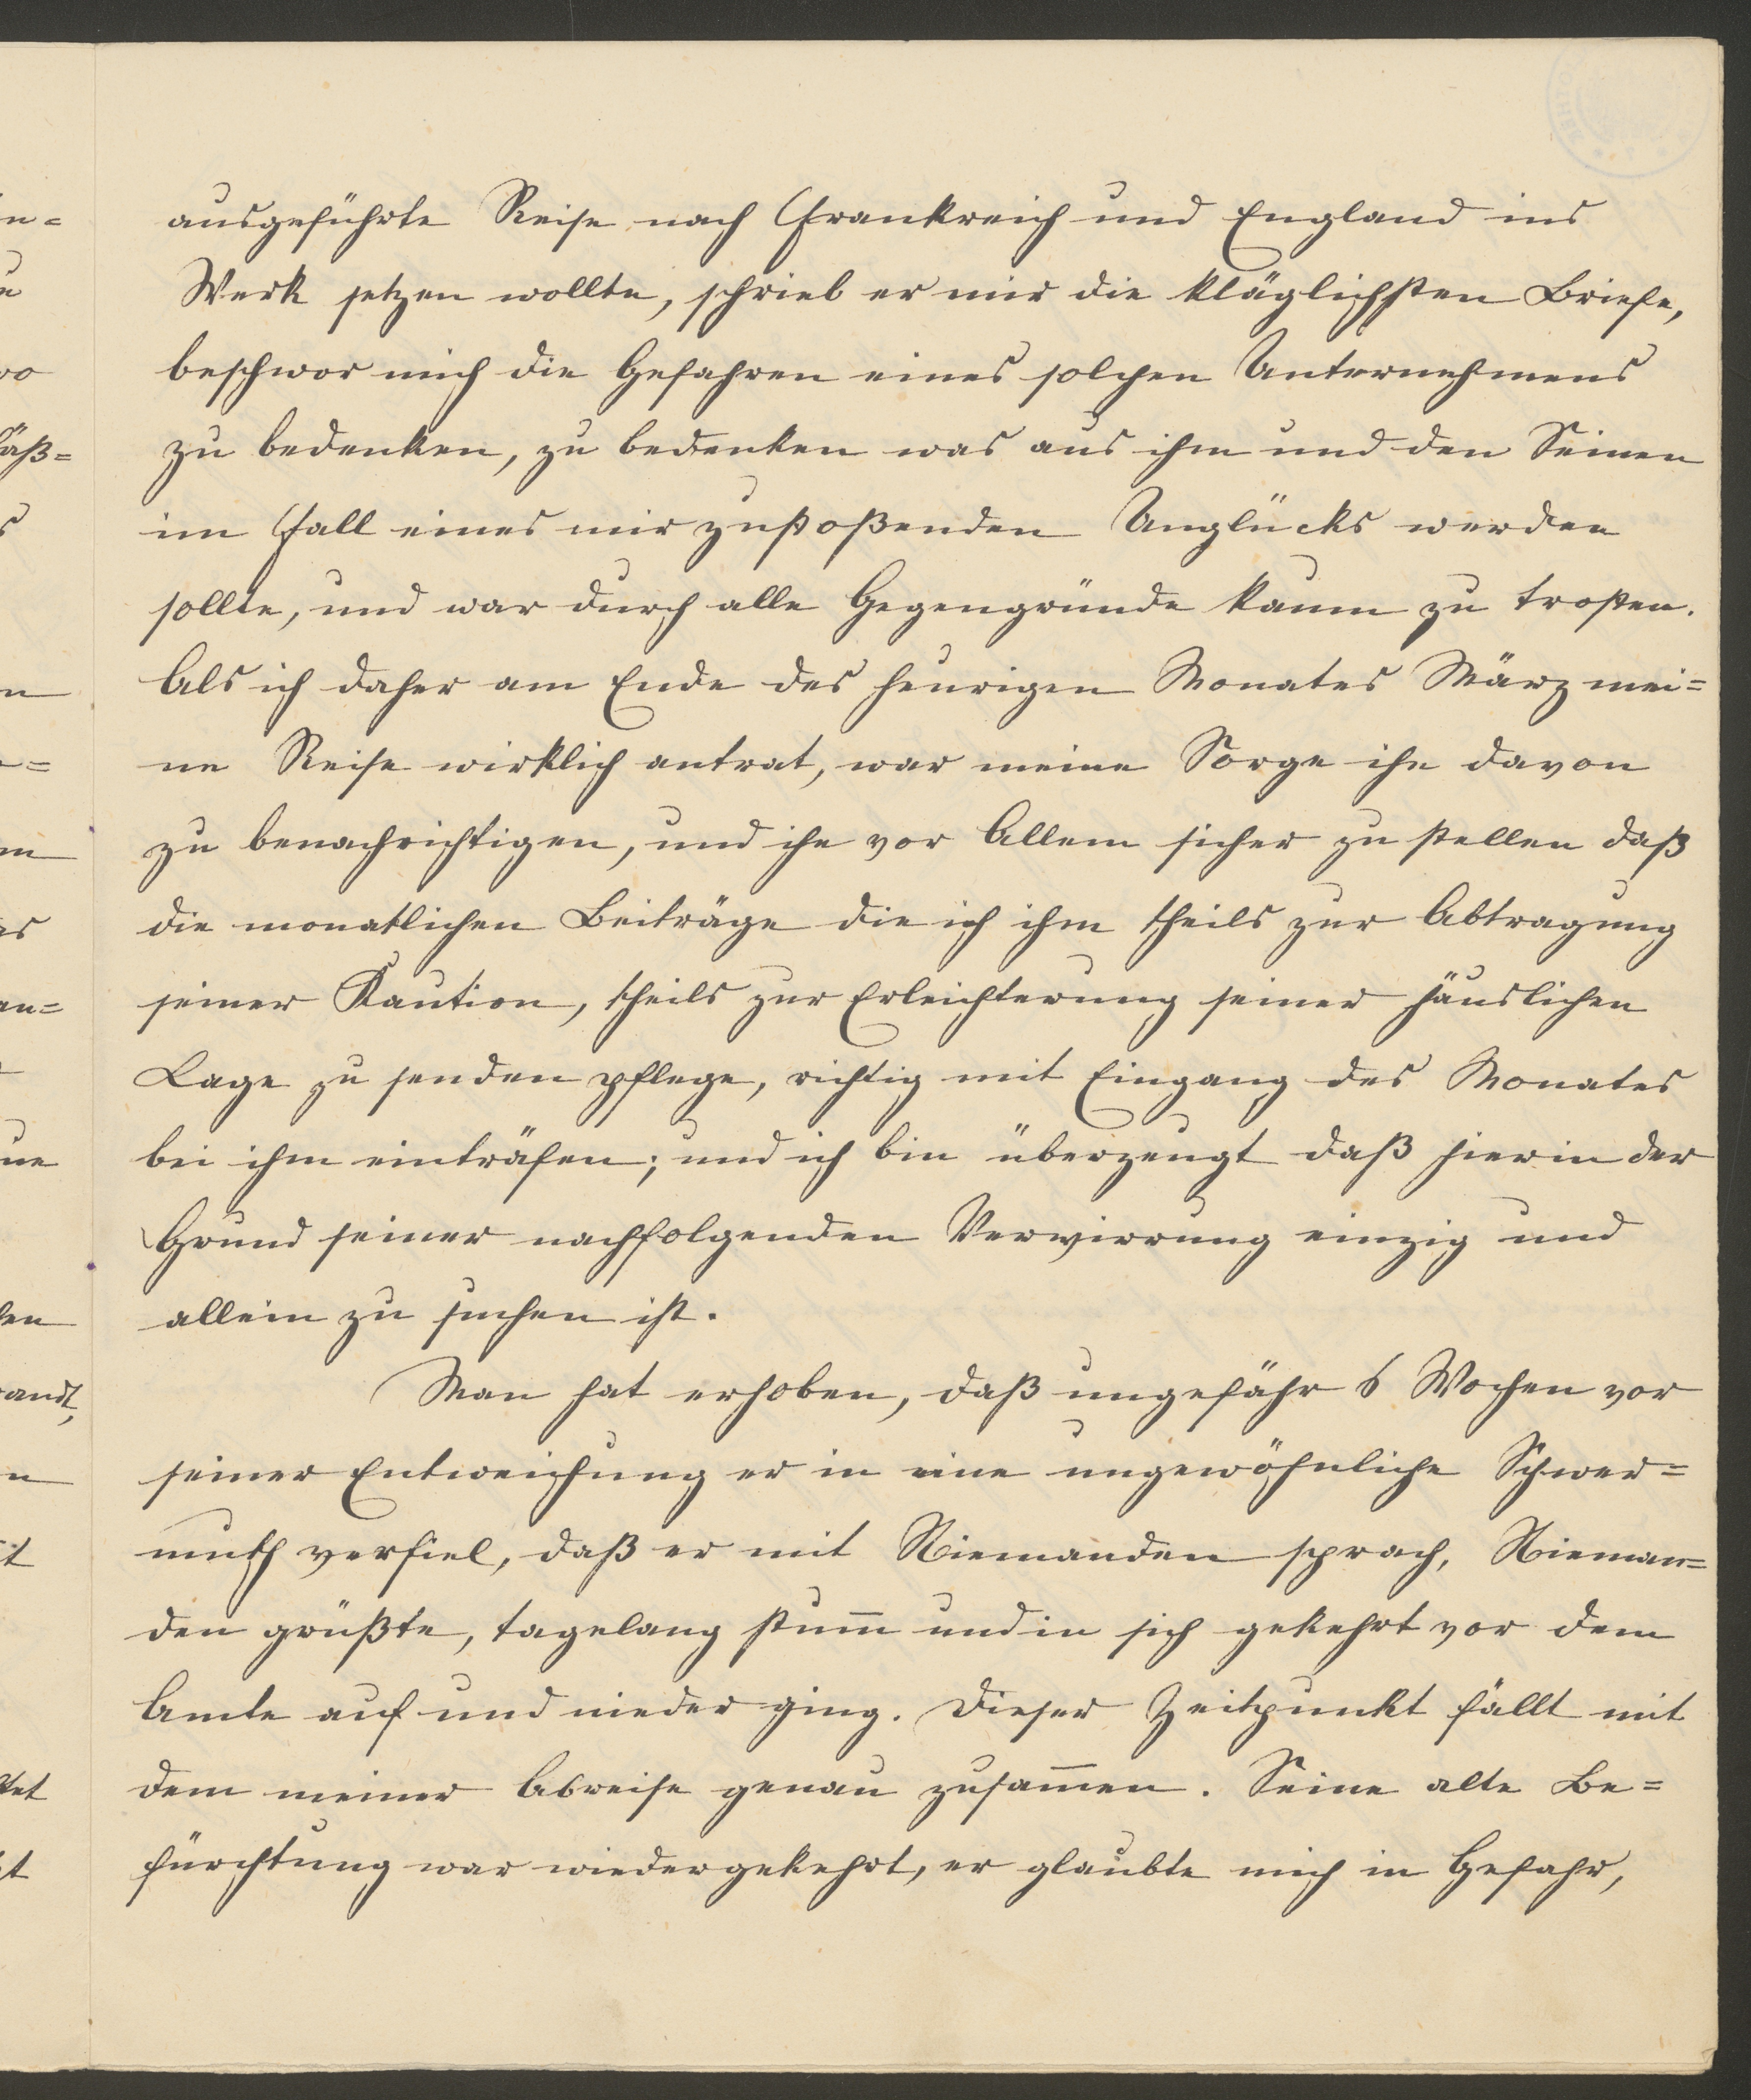 ausgeführte Reise nach Frankreich und England ins
Werk setzen wollte, schrieb er mir die kläglichsten Briefe,
beschwor mich die Gefahren eines solchen Unternehmens
zu bedenken, zu bedenken was aus ihm und den Seinen
im Fall eines mir zustoßenden Unglücks werden
sollte, und war durch alle Gegengründe kaum zu trosten.
Als ich daher am Ende des heurigen Monates März mei=
ne Reise wirklich antrat, war meine Sorge ihn davon
zu benachrichtigen, und ihn vor Allem sicher zu stellen daß
die monatlichen Beiträge die ich ihm theils zur Abtragung
seiner Kaution, theils zur Erleichterung seiner häuslichen
Lage zu senden pflege, richtig mit Eingang des Monates
bei ihm einträfen; und ich bin überzeugt daß hierin der
Grund seiner nachfolgenden Verwirrung einzig und
allein zu suchen ist.
Man hat erhoben, daß ungefähr 6 Wochen vor
seiner Entweichung er in eine ungewöhnliche Schwer=
muth verfiel, daß er mit Niemanden sprach, Nieman=
den grüßte, tagelang stum̅ und in sich gekehrt vor dem
Amte auf und nieder ging. Dieser Zeitpunkt fällt mit
dem meiner Abreise genau zusam̅en. Seine alte Be=
fürchtung war wiedergekehrt, er glaubte mich in Gefahr,